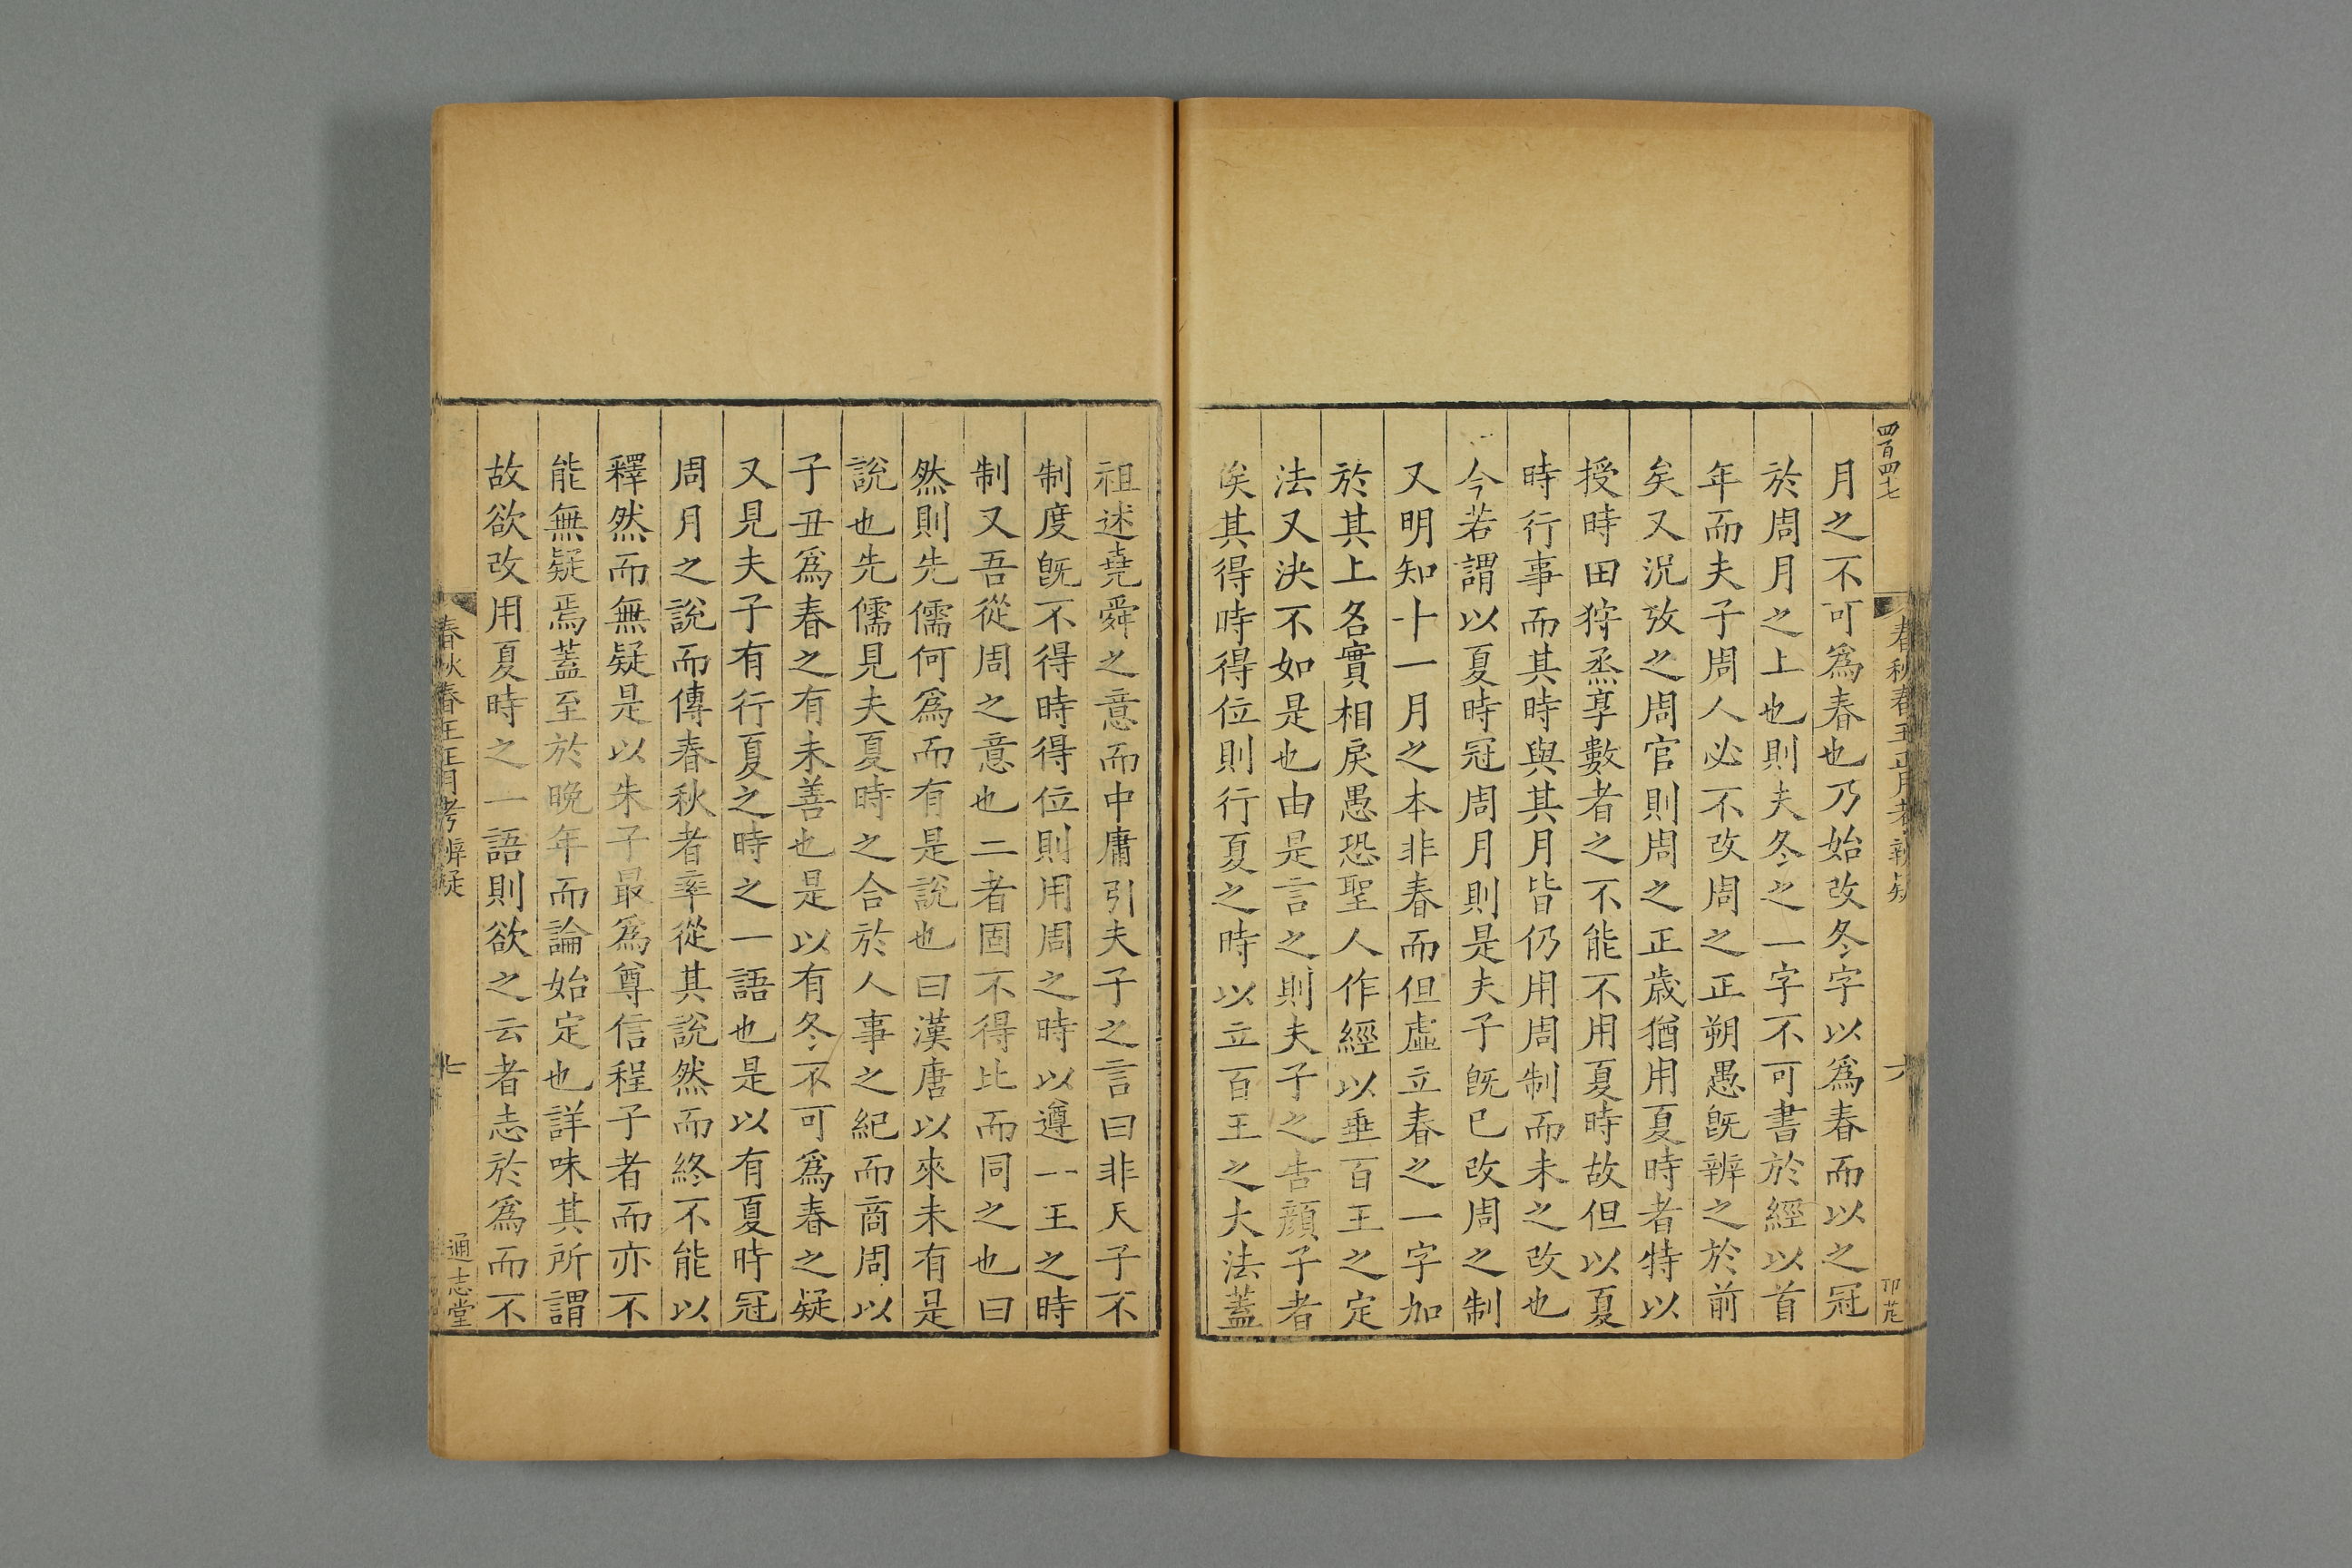 四百四七
春秋春王正月考辨疑
六
月之不可爲春也乃始改冬字以爲春而以之冠
於周月之上也則夫冬之一字不可書於經以首
年而夫子周人必不改周之正朔愚旣辨之於前
矣又況攷之周官則周之正歲猶用夏時者特以
授時田狩烝享數者之不能不用夏時故但以夏
時行事而其時與其月皆仍用周制而未之改也
今若謂以夏時冠周月則是夫子旣已改周之制
又明知十一月之本非春而但虛立春之一字加
於其上各實相戾愚恐聖人作經以垂百王之定
法又決不如是也由是言之則夫子之告顔子者
俟其得時得位則行夏之時以立百王之大法蓋
祖述堯舜之意而中庸引夫子之言曰非天子不
制度旣不得時得位則用周之時以遵一王之時
制又吾從周之意也二者固不得比而同之也曰
然則先儒何爲而有是說也曰漢唐以來未有是
說也先儒見夫夏時之合於人事之紀而商周以
子丑爲春之有未善也是以有冬不可爲春之疑
又見夫子有行夏之時之一語也是以有夏時冠
周月之說而傳春秋者率從其說然而終不能以
釋然而無疑是以朱子最爲尊信程子者而亦不
能無疑焉蓋至於晩年而論始定也詳味其所謂
故欲改用夏時之一語則欲之云者志於爲而不
春秋春王正月考辨疑
七
通志堂